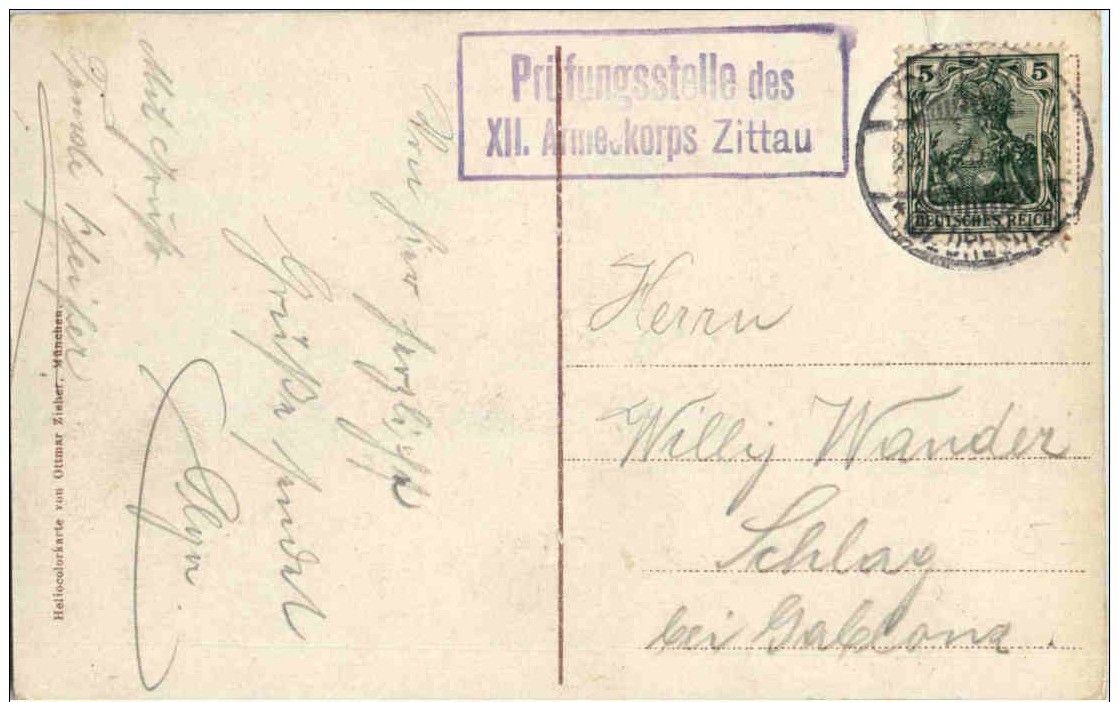 Prüfungsstelle des
XII. Armeekorps Zittau
5 5
DEUTSCHES REICH
Von hier herzlichste
Grüße sendet
Mit Gruß
Heliocolorkarte von Ottmar Zieher, München.
Herrn
Willy Wander
Schlag
bei Gablonz.